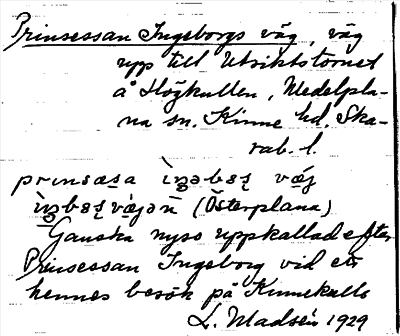 Prinsessan Ingeborgs väg, väg
upp till Utsiktstornet
å Högkullen, Medelpla-
na sn. Kinne hd. Ska-
rab. l.
prinsæsa
(Österplana)
Ganska nyss uppkallad efter
Prinsessan Ingeborg vid ett
hennes besök på Kinnekulle
L. Madsén 1929